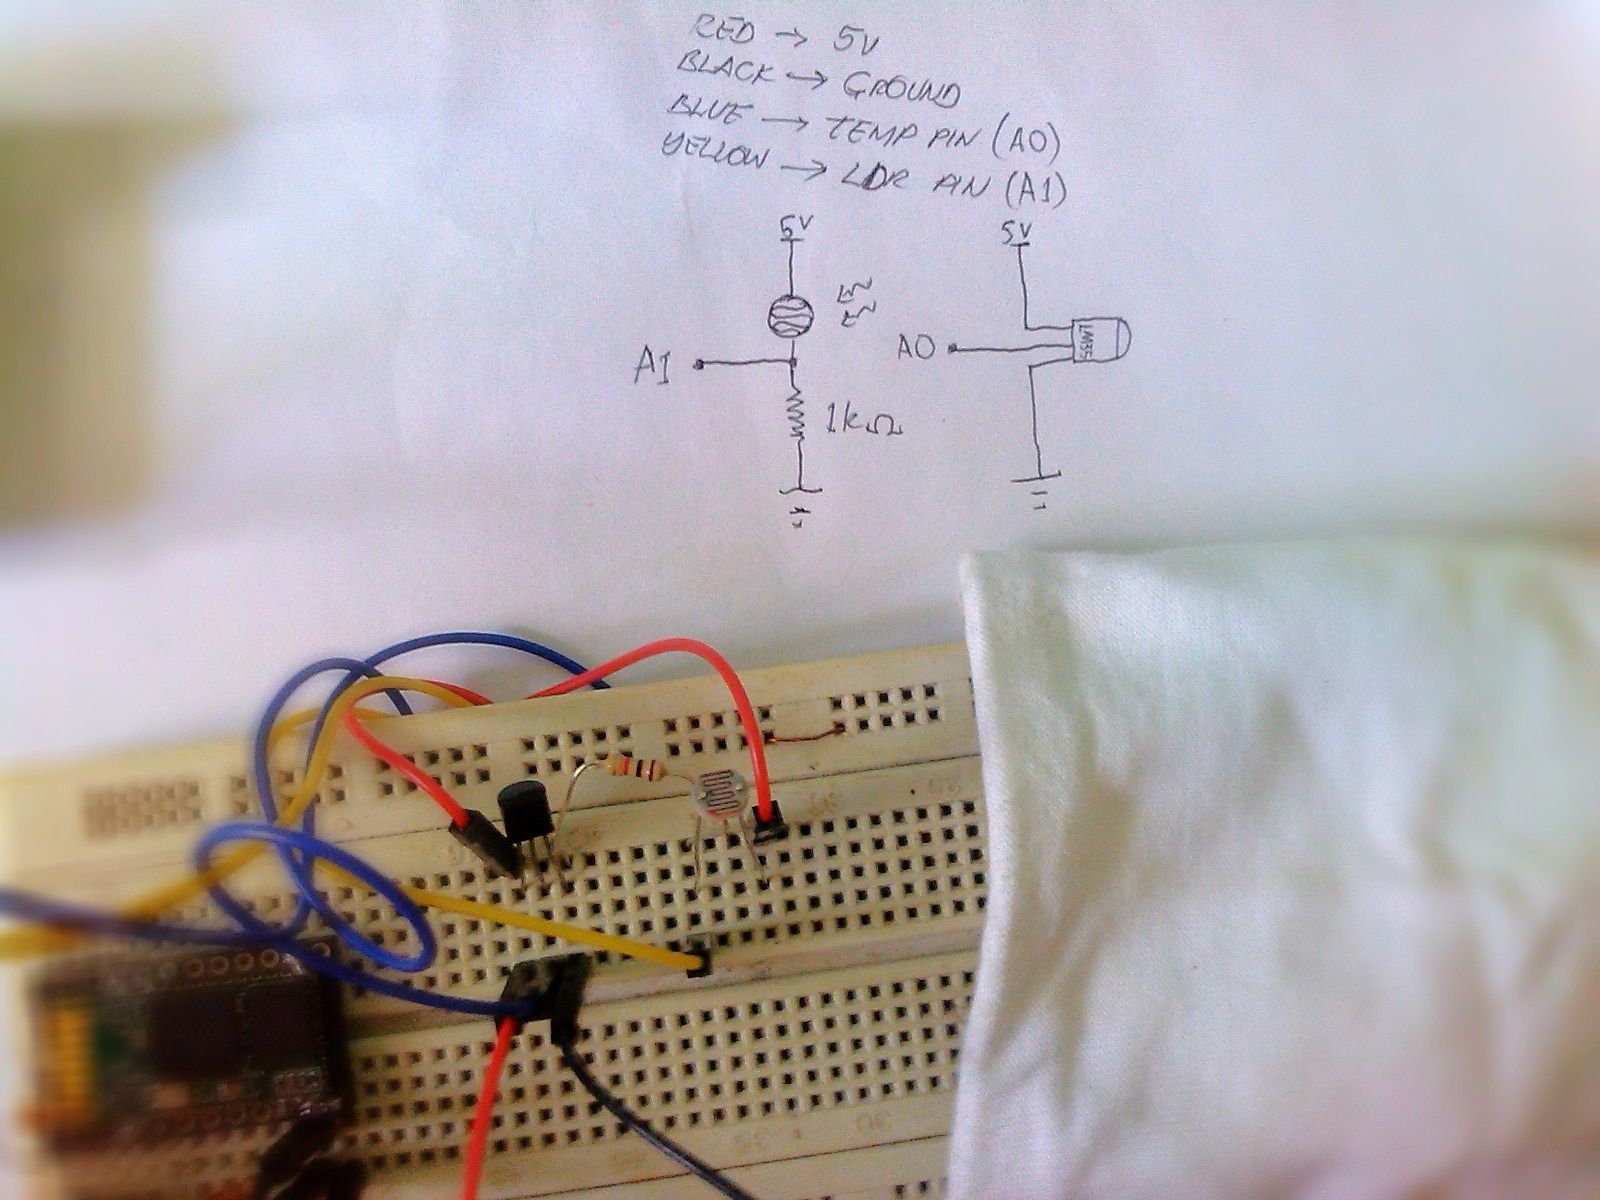 RED → 5V
BLACK → GROUND
BLUE → TEMP PIN (A0)
YELLOW → LDR PIN (A1)
5V
5V
A1
A0
LM35
1kΩ